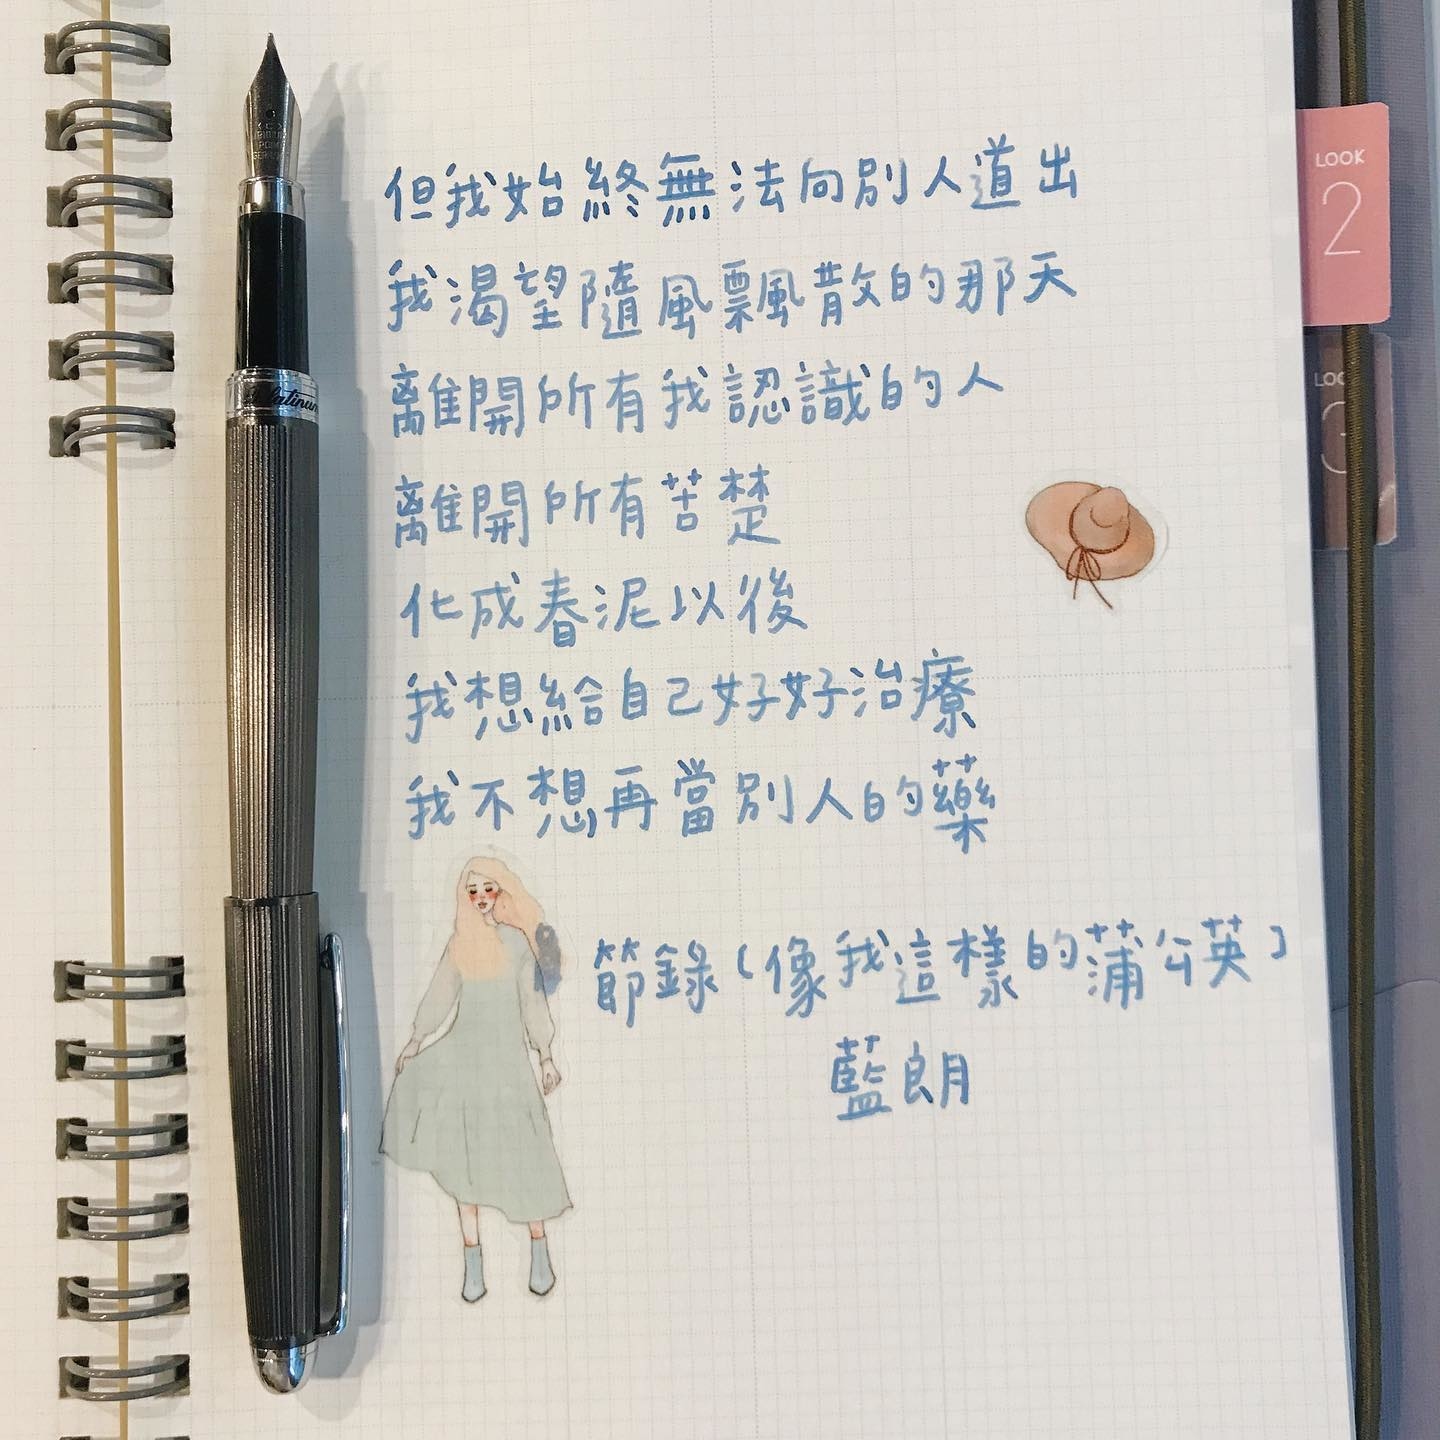 但我始終無法向別人道出
我渴望隨風飄散的那天
離開所有我認識的人
離開所有苦楚
化成春泥以後
我想給自己好好治療
我不想再當別人的藥
節錄〔像我這樣的蒲公英〕
藍朗
LOOK
2
LOOK
3
Platinum